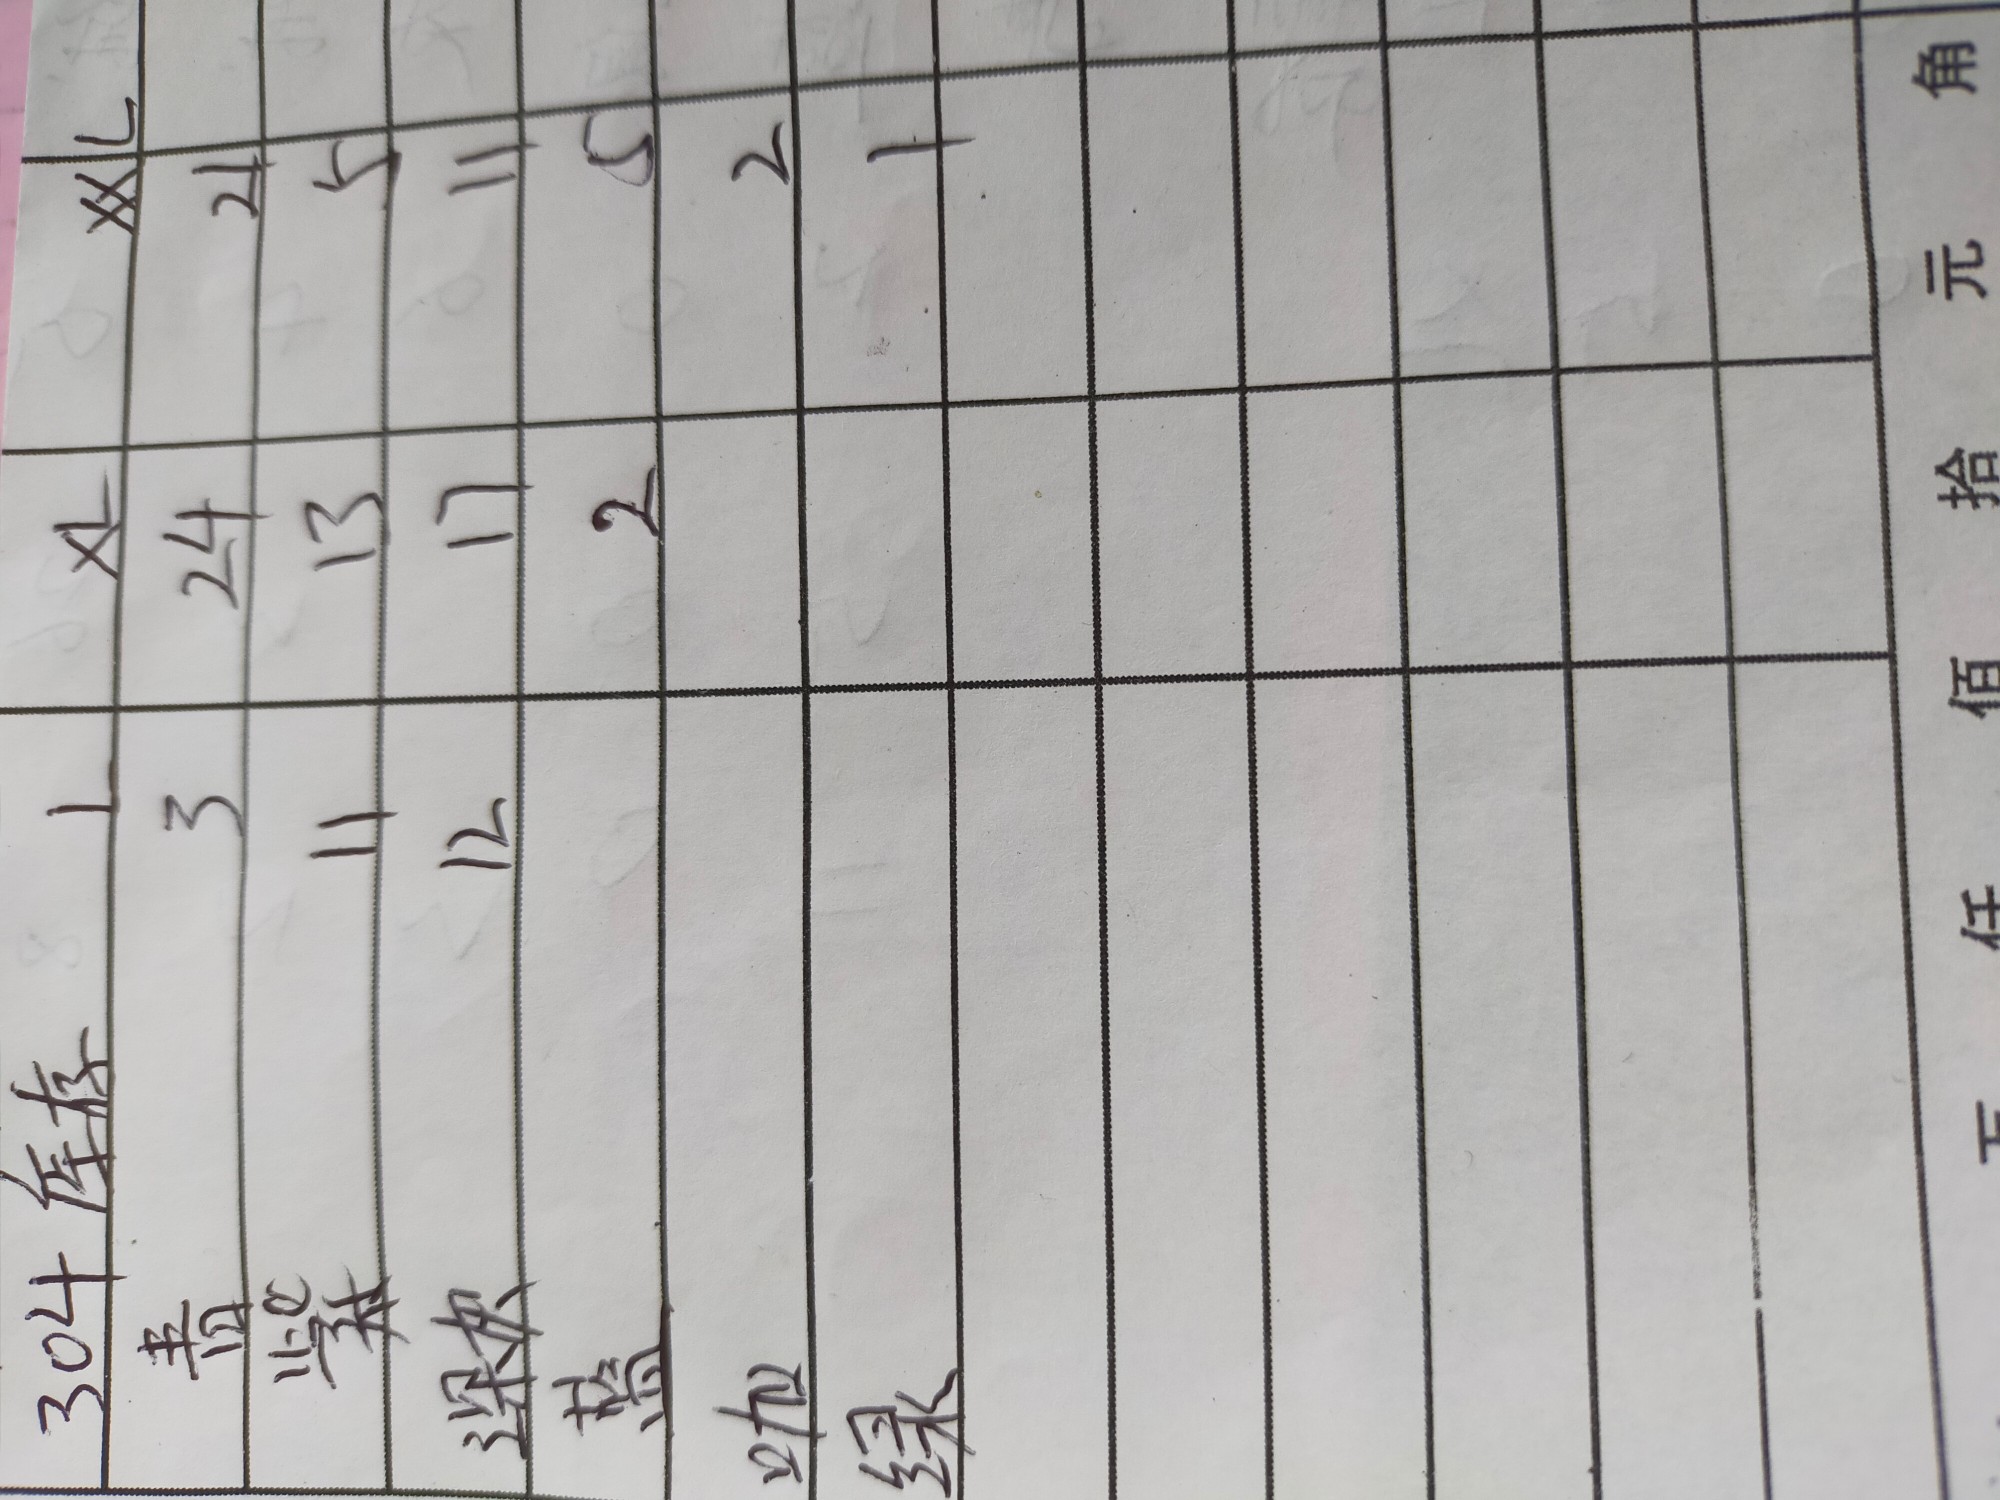 304 库存 L XL XXL
青 3 24 21
紫 11 13 5
深灰 12 17 11
蓝 2 5
咖 2
绿 1
万 仟 佰 拾 元 角